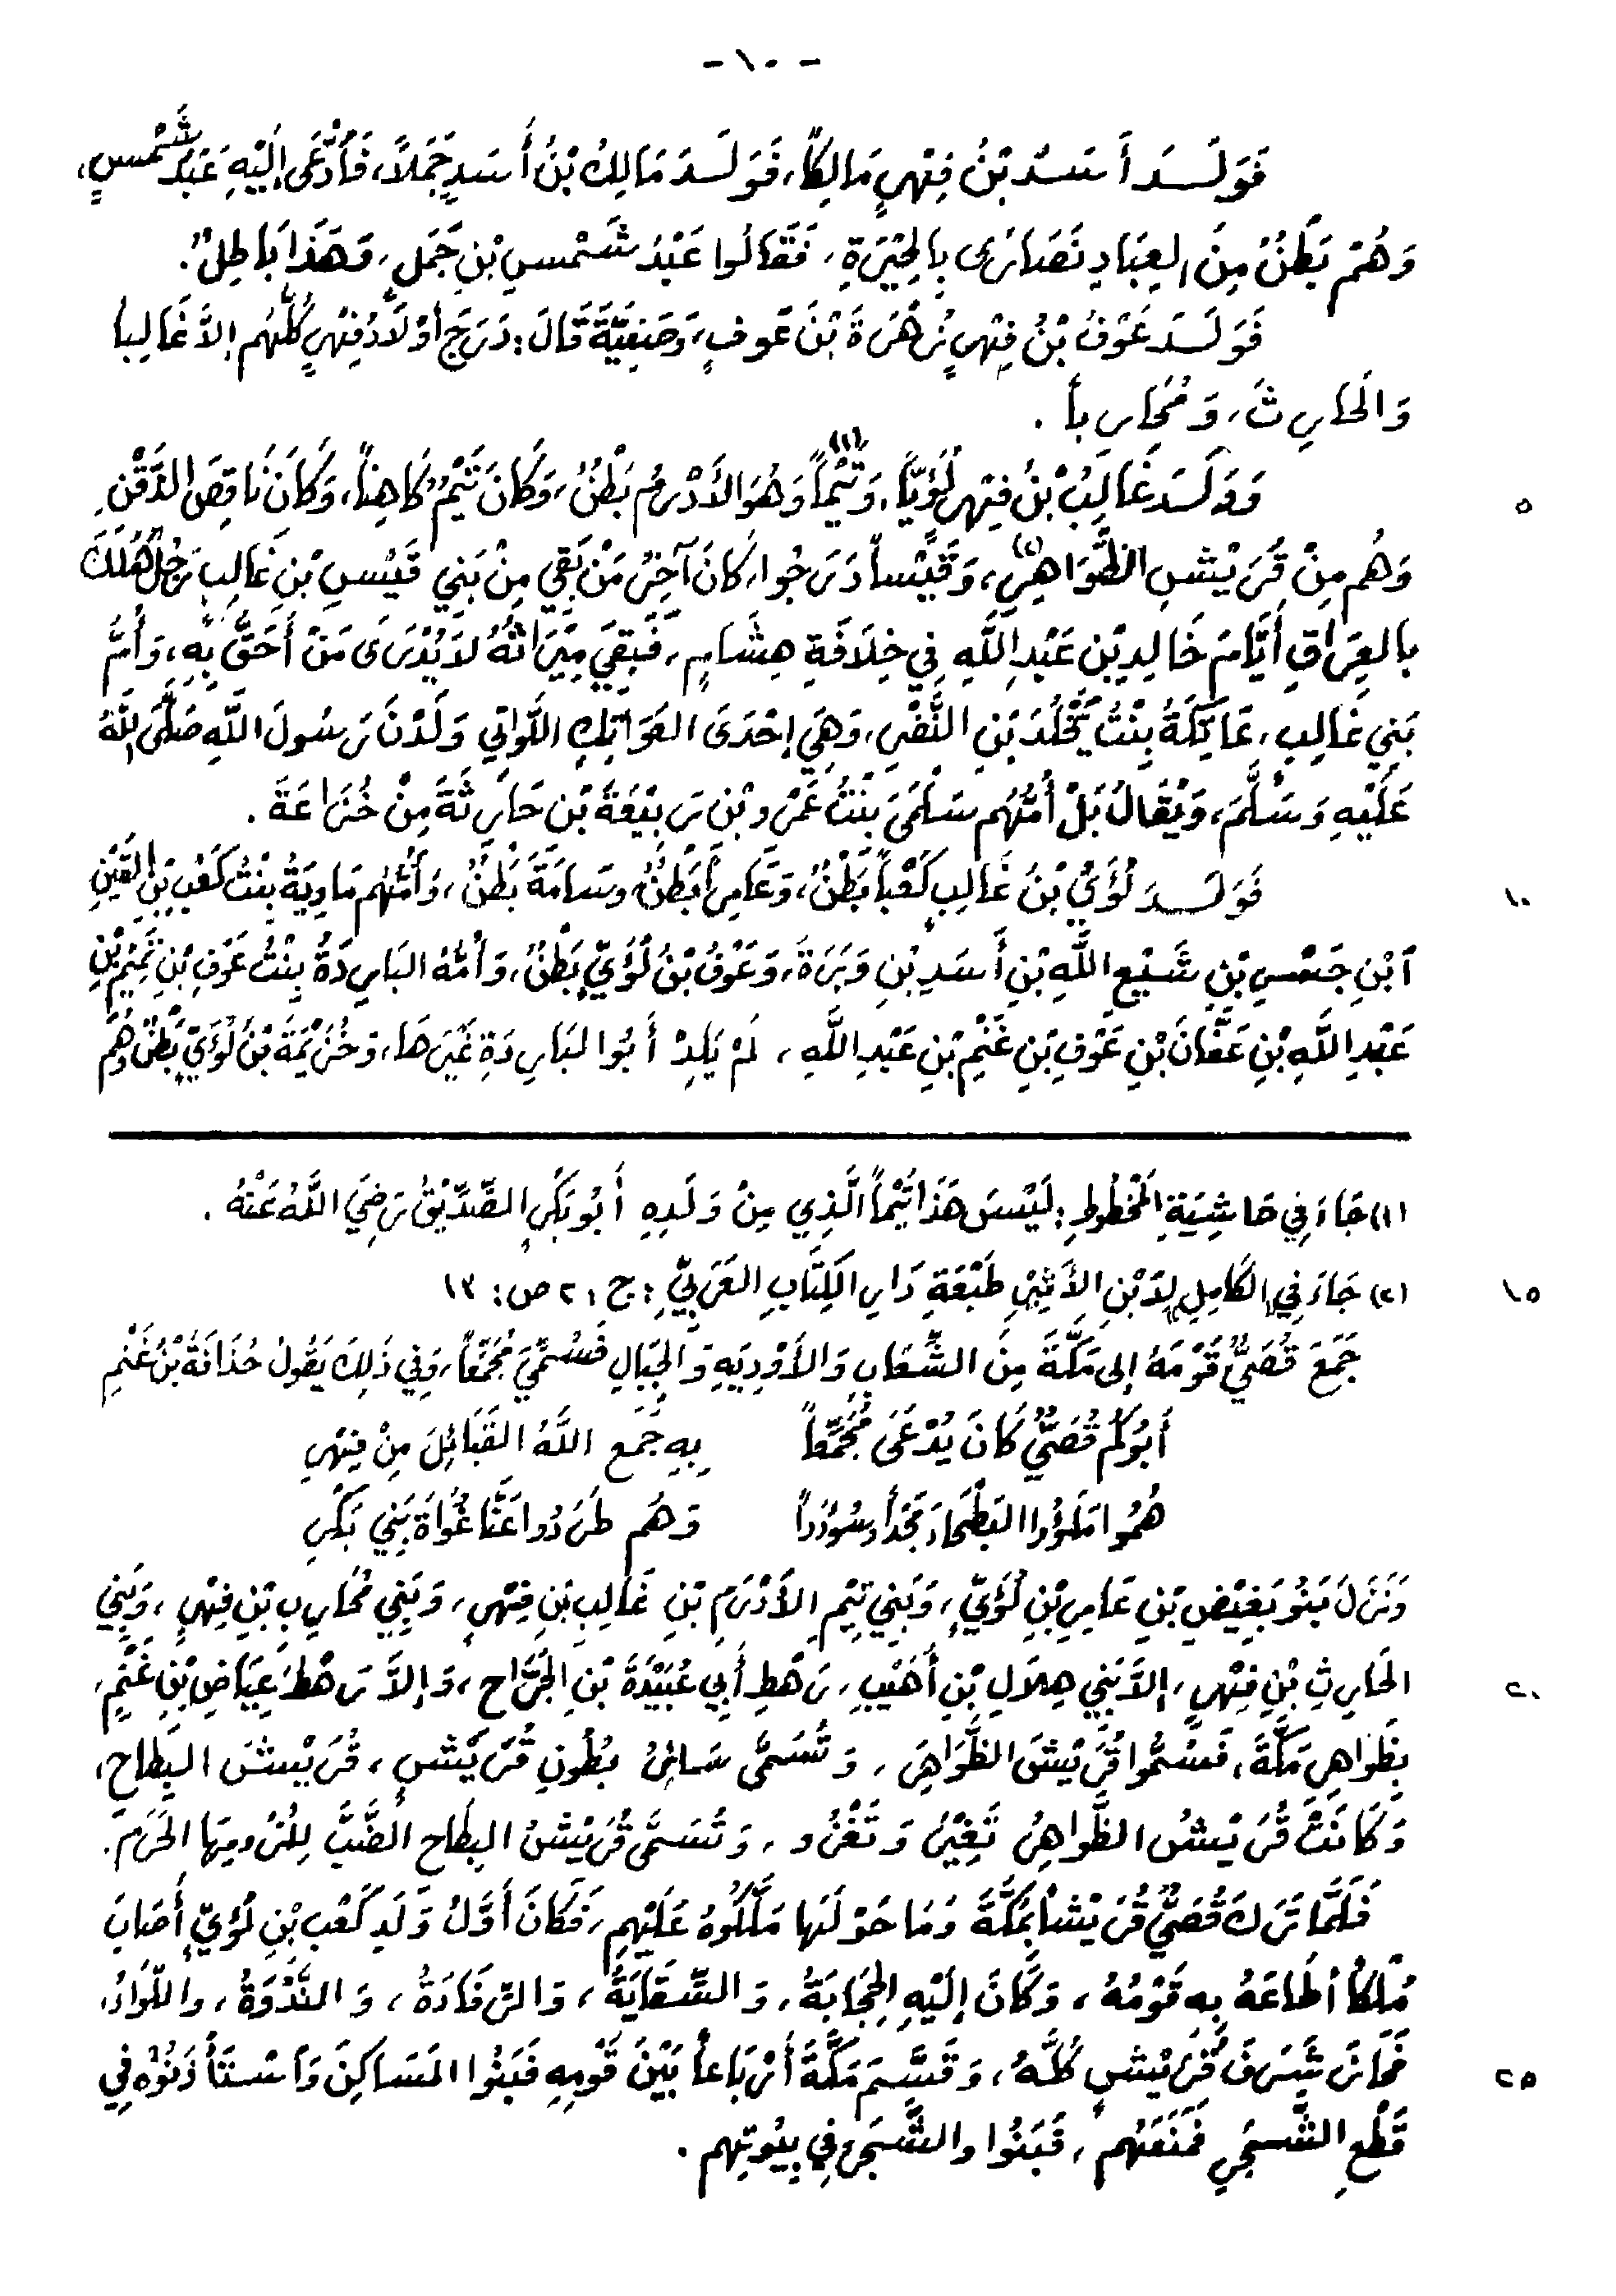 - ١٠ -
فَوَلَسدَ أَسَدُ بْنُ فِهْرٍ مَالِكاً، فَوَلَسدَ مَالِكُ بْنُ أَسَدٍ جَمَلاً، فَأَدَّعَى إِلَيْهِ عَبْدُ شَمْسٍ،
وَهُمْ بَطْنٌ مِنَ العِبَادِ نَصَارَى بِالحِيْرَةِ، فَقَالُوا عَبْدُ شَمْسِ بْنِ جَمَلٍ، وَهَذَا بَاطِلٌ.
فَوَلَسدَ عَوْفُ بْنُ فِهْرٍ زُهْرَةَ بْنَ عَوفٍ، وَصَفِيَّةَ قَالَ: دَرَجَ أَوْلَادُ فِهْرٍ كُلُّهُم إلاَّ غَالِباً
وَالحَارِثَ، وَمُحَارِباً .
وَوَلَسدَ غَالِبُ بْنُ فِهْرٍ لُؤَيّاً، وَتَيْماً (١) وَهُوَ الأَدْرَمُ بَطْنٌ، وَكَانَ تَيْمٌ كَاهِناً، وَكَانَ نَاقِصَ الذَّقْنِ
٥
وَهُم مِنْ قُرَيْشِ الظَّوَاهِرِ (٢)، وَقَيْساً دَرَجُوا، كَانَ آخِرُ مَنْ بَقِيَ مِنْ بَنِي قَيْسِ بْنِ غَالِبٍ رَجُلٌ هَلَكَ
بالعِرَاقِ أَيَّامَ خَالِدِ بْنِ عَبْدِ اللَّهِ فِي خِلَافَةِ هِشَامٍ، فَبَقِيَ مِيْرَاثُهُ لاَ يُدْرَى مَنْ أَحَقُّ بِهِ، وَأُمُّ
بَنِي غَالِبٍ، عَاتِكَةُ بِنْتُ يَخْلُدَ بْنِ النَّضْرِ، وَهِيَ إِحْدَى العَوَاتِكِ اللَّوَاتِي وَلَدْنَ رَسُولَ اللَّهِ صَلَّى اللَّهُ
عَلَيْهِ وَسَلَّمَ، وَيُقَالُ بَلْ أُمُّهُم سَلْمَى بِنْتُ عَمْرِو بْنِ رَبِيْعَةَ بْنِ حَارِثَةَ مِنْ خُزَاعَةَ .
فَوَلَسدَ لُؤَيُّ بْنُ غَالِبٍ كَعْباً بَطْنٌ، وَعَامِراً بَطْنٌ، وسَامَةَ بَطْنٌ، وَأُمُّهُم مَاوِيَةُ بِنْتُ كَعْبِ بْنِ القَيْنِ
١٠
اَبْنِ جَسْسِ بْنِ شَيْعِ اللَّهِ بْنِ أَسَدِ بْنِ وَبَرَةَ، وَعَوْفُ بْنُ لُؤَيٍّ بَطْنٌ، وَأُمُّهُ البَارِدَةُ بِنْتُ عَوْفِ بْنِ تَمِيْمِ بْنِ
عَبْدِ اللَّهِ بْنِ عَفَّانَ بْنِ عَوْفِ بْنِ غَنْمِ بْنِ عَبْدِ اللَّهِ، لَمْ يَلِدْ أَبُو البَارِدَةِ غَيْرَهَا، وَخُزَيْمَةَ بْنُ لُؤَيٍّ بَطْنٌ وَهُمْ
(١) جَاءَ فِي حَاشِيَةِ المَخْطُوطِ: لَيْسَ هَذَا تَيْماً الَّذِي مِنْ وَلَدِهِ أَبُو بَكْرٍ الصِّدِّيْقُ رَضِيَ اللَّهُ عَنْهُ .
(٢) جَاءَ فِي "الكَامِلِ" لاِبْنِ الأَثِيْرِ طَبْعَةِ دَارِ الكِتَابِ العَرَبِيِّ: ج ٢١ ص: ١٣
١٥
جَمَعَ قُصَيٌّ قَوْمَهُ إلى مَكَّةَ مِنَ الشِّعَابِ وَالأَوْدِيَةِ وَالجِبَالِ فَسُمِّيَ مُجَمِّعاً، وَفِي ذَلِكَ يَقُولُ حُذَافَةُ بْنُ غَنْمٍ
أَبُوكُم قُصَيٌّ كَانَ يُدْعَى مُجَمِّعاً بِهِ جَمَعَ اللَّهُ القَبَائِلَ مِنْ فِهْرِ
هُمُوا مَلَؤُوا البَطْحَاءَ مَجْداً وسُؤْدَداً وَهُم طَرَدُوا عَنَّا غُوَاةَ بَنِي بَكْرِ
وَنَزَلَ بَنُو بَغِيْضِ بْنِ عَامِرِ بْنِ لُؤَيٍّ، وَبَنِي تَيْمِ الأَدْرَمِ بْنِ غَالِبِ بْنِ فِهْرٍ، وَبَنِي مُحَارِبِ بْنِ فِهْرٍ، وَبَنِي
الحَارِثِ بْنِ فِهْرٍ، إلاَّ بَنِي هِلاَلِ بْنِ أُهَيْبٍ، رَهْطِ أَبِي عُبَيْدَةَ بْنِ الجَرَّاحِ، وَإلاَّ رَهْطَ عِيَاضِ بْنِ غَنْمٍ،
٢٠
بِظَوَاهِرِ مَكَّةَ، فَسُمُّوا قُرَيْشَ الظَّوَاهِرِ، وَتُسَمَّى سَائِرُ بُطُونِ قُرَيْشٍ، قُرَيْشَ البِطَاحِ،
وَكَانَتْ قُرَيْشُ الظَّوَاهِرِ تَغِيْرُ وَتَغْزُو، وَتُسَمَّى قُرَيْشُ البِطَاحِ الضَّبَّ لِلُزُومِهَا الحَرَمَ.
فَلَمَّا تَرَكَ قُصَيٌّ قُرَيْشاً بِمَكَّةَ وَمَا حَوْلَهَا مَلَّكُوهُ عَلَيْهِم، فَكَانَ أَوَّلَ وَلَدِ كَعْبِ بْنِ لُؤَيٍّ أَصَابَ
مُلْكاً أَطَاعَهُ بِهِ قَوْمُهُ، وَكَانَ إِلَيْهِ الحِجَابَةُ، وَالسِّقَايَةُ، وَالرِّفَادَةُ، وَالنَّدْوَةُ، وَاللِّوَاءُ،
فَحَازَ شَرَفَ قُرَيْشٍ كُلَّهُ، وَقَسَّمَ مَكَّةَ أَرْبَاعاً بَيْنَ قَوْمِهِ فَبَنُوا المَسَاكِنَ وَاَسْتَأْذَنُوْهُ فِي
٢٥
قَطْعِ الشَّجَرِ فَمَنَعَهُم، فَبَنُوا والشَّجَرُ فِي بِيُوتِهِم .